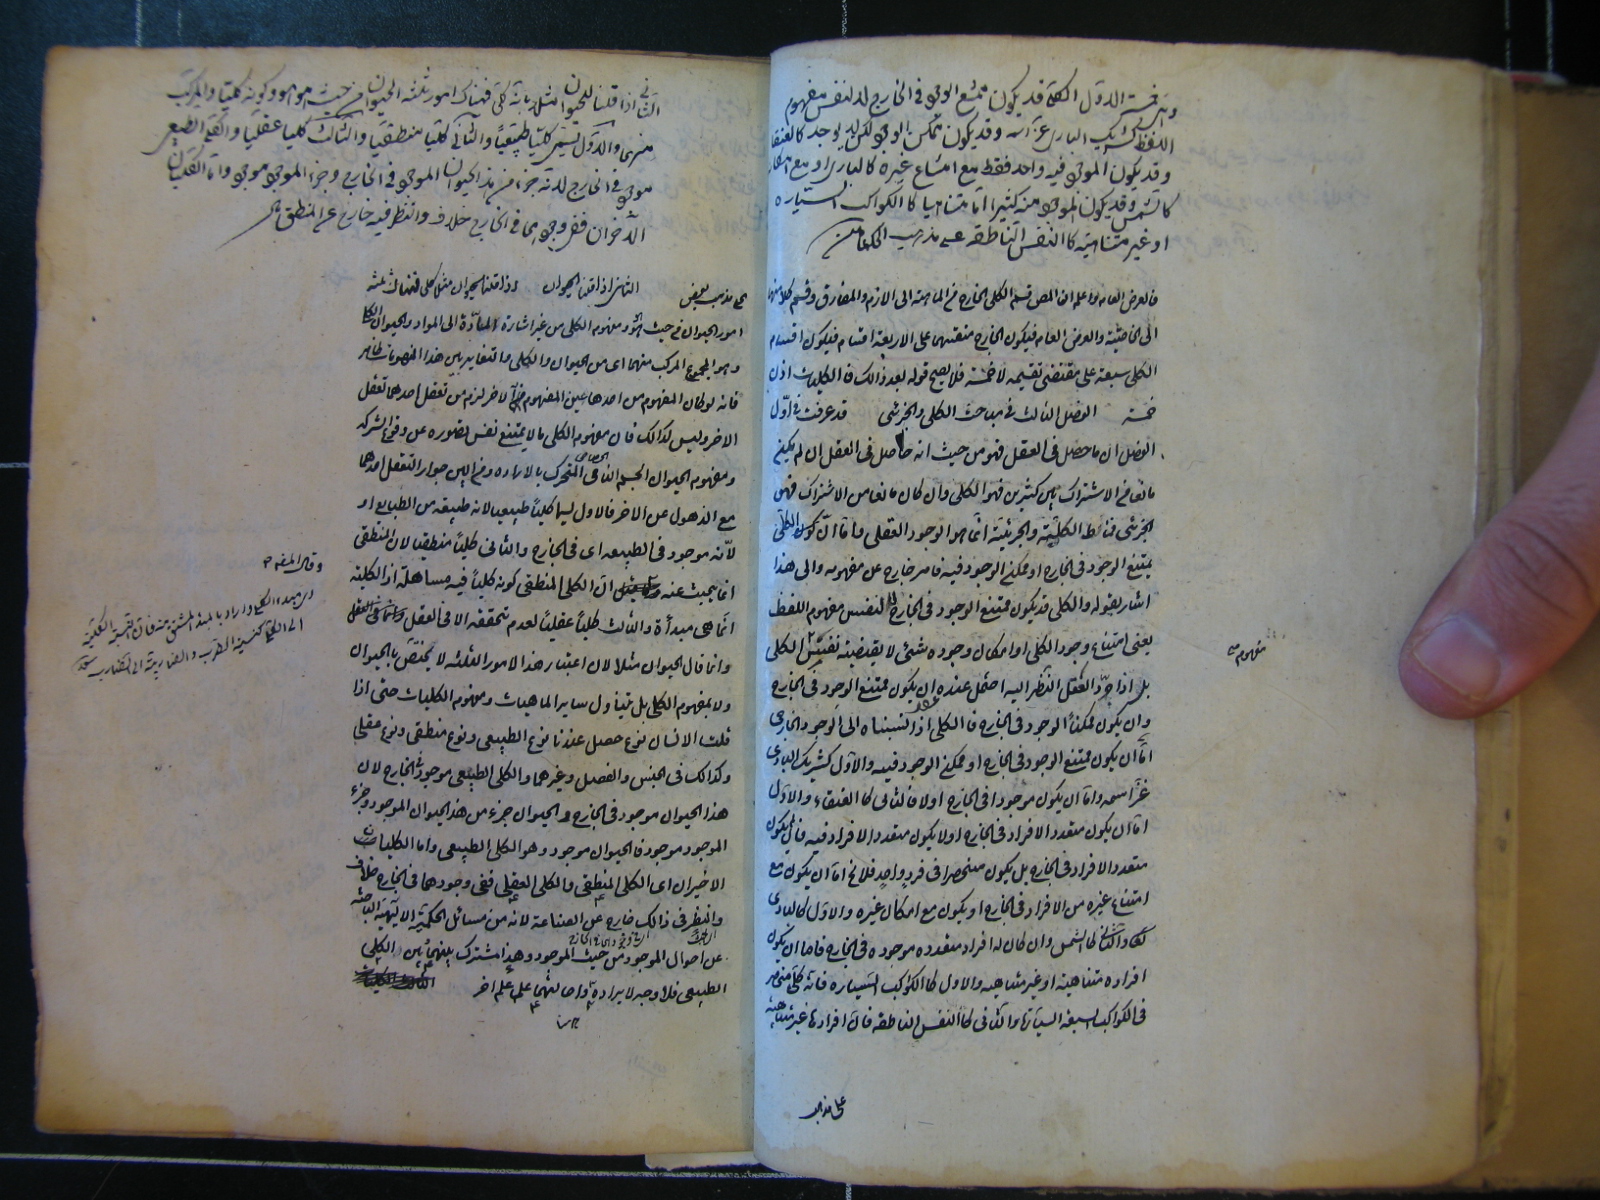 وهي خمسة الأول الكلي قد يكون ممتنع الوجود في الخارج لا لنفس مفهوم
اللفظ كشريك الباري عز اسمه وقد يكون ممكن الوجود لكن لا يوجد كالعنقاء
وقد يكون الموجود فيه واحد فقط مع امتناع غيره كالباري او مع امكانه
كالشمس وقد يكون الموجود منه كثيرا اما متناهيا كالكواكب السيارة
او غير متناهية كالنفس الناطقة على مذهب الحكماء
فالعرض العام واعلم ان المص قسم الكلي الخارج عن الماهية الى اللازم والمفارق وقسم كلا منهما
الى الخاصة والعرض العام فيكون الخارج منقسما على الاربعة اقسام فيكون اقسام
الكلي سبعة على مقتضى تقسيمه لا خمسة فلا يصح قوله بعد ذالك فالكليات اذن
خمسة الفصل الثالث في مباحث الكلي والجزئي قد عرفت في اول
الفصل ان ما حصل في العقل فهو من حيث انه حاصل في العقل ان لم يكن
مانعا من الاشتراك بين كثيرين فهو الكلي وان كان مانعا من الاشتراك فهو
الجزئي فمناط الكلية والجزئية انما هو الوجود العقلي واما ان يكون الكلي
يمتنع الوجود في الخارج او ممكن الوجود فيه فامر خارج عن مفهومه والى هذا
اشار بقوله والكلي قد يكون ممتنع الوجود في الخارج لا لنفس مفهوم اللفظ
يعني امتناع وجود الكلي او امكان وجوده شئ لا يقتضيه نفس الكلي
بل اذا جرد العقل النظر اليه احتمل عنده ان يكون ممتنع الوجود في الخارج
وان يكون ممكن الوجود في الخارج فالكلي اذا نسبناه الى الوجود الخارجي
اما ان يكون ممتنع الوجود في الخارج او ممكن الوجود فيه والاول كشريك الباري
عز اسمه واما ان يكون موجودا في الخارج اولا فالثاني كالعنقاء والاول
اما ان يكون متعدد الافراد في الخارج اولا يكون متعدد الافراد فيه فان لم يكون
متعدد الافراد في الخارج بل يكون منحصرا في فرد واحد فلا يخ اما ان يكون مع
امتناع غيره من الافراد في الخارج او يكون مع امكان غيره والاول كالباري
والثاني كالشمس وان كان له افراد متعدده موجوده في الخارج فاما ان يكون
افراده متناهية او غير متناهيه والاول كالكواكب السيارة فانه كلي منحصر
في الكواكب السبعة السيارة والثاني كالنفس الناطقه فان افرادها غير متناهية
على مذهب
مفهوم
الثاني اذا قلنا للحيوان مثلا بانه كلي فهناك امور ثلثة الحيوان من حيث هو هو وكونه كليا والمركب
منهما والاول يسمى كليا طبيعيا والثاني كليا منطقيا والثالث كليا عقليا والكلي الطبيعي
موجود في الخارج لانه جزء من هذا الحيوان الموجود في الخارج وجزء الموجود موجود واما الكليان
الاخران ففي وجودهما في الخارج خلاف والنظر فيه خارج عن المنطق
على مذهب بعض الثاني اذا قلنا الحيوان اذا قلنا الحيوان مثلا كلي فهناك ثلثة
امور الحيوان من حيث هو ومفهوم الكلي من غير اشارة الى المواد والحيوان الكلي
وهو المجموع المركب منهما اى من الحيوان والكلي والتغاير بين هذا المفهومات ظاهر
فانه لو كان المفهوم من احدهما عين المفهوم من الاخر لزم من تعقل احدهما تعقل
الاخر وليس كذالك فان مفهوم الكلي ما لا يمتنع نفس تصوره عن وقوع الشركة
ومفهوم الحيوان الجسم النامي الحساس المتحرك بالاراده ومن البين جواز التعقل احدهما
مع الذهول عن الاخر فالاول ليسما كليا طبيعيا لانه طبيعة من الطبايع او
لانه موجود في الطبيعه اى في الخارج والثاني كليا منطقيا لان المنطقي
انما يبحث عنه ان الكلي المنطقي كونه كليا فيه مساهلة اذ الكلية
انما هي مبدأه والثالث كليا عقليا لعدم تحققه الا في العقل
وانما قال الحيوان مثلا لان اعتبار هذا الامور الثلثة لا يختص بالحيوان
ولا بمفهوم الكلي بل يتناول ساير الماهيات ومفهوم الكليات حتى اذا
قلت الانسان نوع حصل عندنا نوع الطبيعي ونوع منطقي ونوع عقلي
وكذالك في الجنس والفصل وغيرهما والكلي الطبيعي موجود في الخارج لان
هذا الحيوان موجود في الخارج والحيوان جزء من هذ الحيوان الموجود وجزء
الموجود موجود فالحيوان موجود وهو الكلي الطبيعي واما الكليان
الاخيران اى الكلي المنطقي والكلي العقلي ففي وجودهما في الخارج خلاف
والنظر في ذالك خارج عن الصناعة لانه من مسائل الحكمية الالهية الباحثة
عن احوال الموجود من حيث الموجود وهذا مشترك بينهما وبين الكلي
الطبيعي فلا وجه لايراده واحالتهما على علم اخر
وقال المص